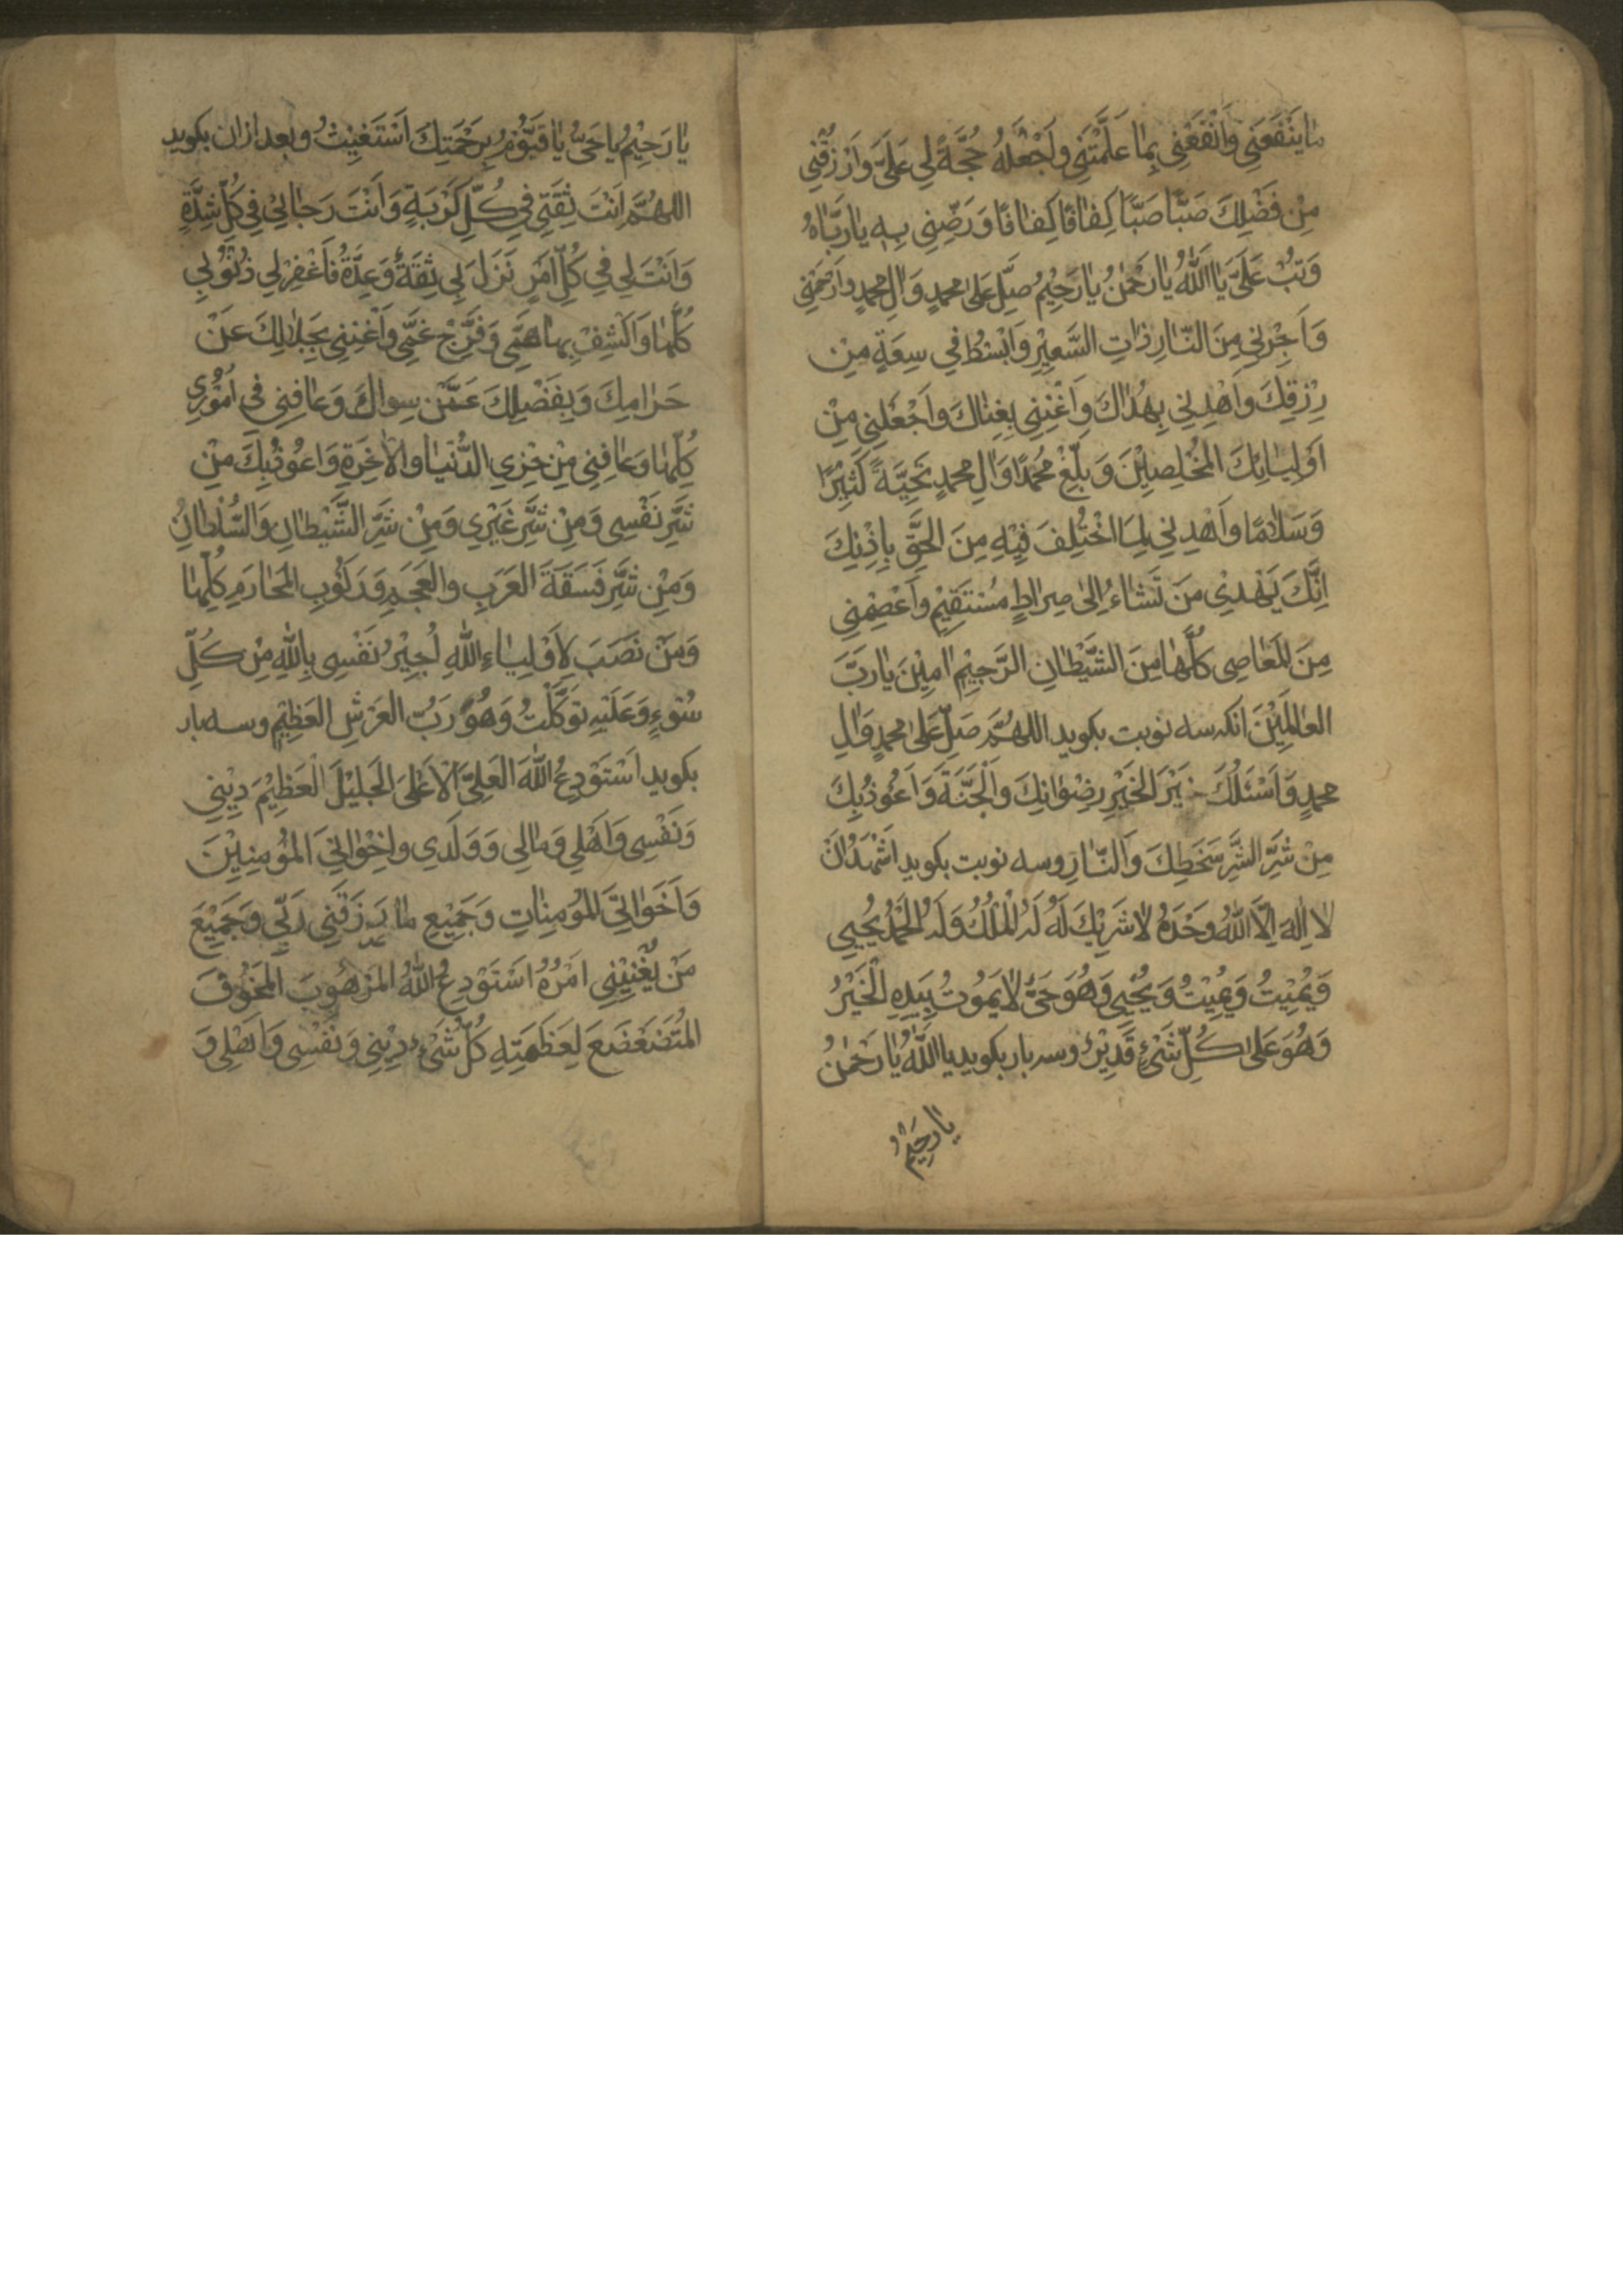 مٰا يَنْفَعَنِى وَانْفَعْنِى بِمٰا عَلَّمْتَنِى وَاجْعَلْهُ حُجَّةً لِى عَلَىَّ وَارْزُقْنِى
مِنْ فَضْلِكَ صَبًّا صَبًّا كِفٰافًا كِفٰافًا وَرَضِّنِى بِهِ يٰا رَبَّاهُ
وَتُبْ عَلَىَّ يٰا اَللّٰهُ يٰا رَحْمٰنُ يٰا رَحِيْمُ صَلِّ عَلىٰ محمدٍ وَاٰلِ محمدٍ وَارْحَمْنِى
وَاَجِرْنِى مِنَ النّٰارِ ذٰاتِ السَّعِيْرِ وَابْسُطْ فِى سِعَةِ مِنْ
رِزْقِكَ وَاهْدِنِى بِهُدٰاكَ وَاَغْنِنِى بِغِنٰاكَ وَاجْعَلْنِى مِنْ
اَوْلِيٰائِكَ الْمُخْلِصِيْنَ وَبَلِّغْ مُحَمَّدًا وَاٰلِ محمدٍ تَحِيَّةً كَثِيْرًا
وَسَلٰامًا وَاهْدِنِى لِمَا اخْتُلِفَ فِيْهِ مِنَ الْحَقِّ بِاِذْنِكَ
اِنَّكَ تَهْدِى مَنْ تَشٰاءُ اِلىٰ صِرٰاطٍ مُسْتَقِيْمٍ وَاعْصِمْنِى
مِنَ الْمَعٰاصِى كُلِّهٰا مِنَ الشَّيْطٰانِ الرَّجِيْمِ اٰمِيْنَ يٰا رَبَّ
الْعٰالَمِيْنَ انكه سه نوبت بكويد اللهُمَّ صَلِّ عَلىٰ محمدٍ وَاٰلِ
محمدٍ وَاَسْئَلُكَ خَيْرَ الْخَيْرِ رِضْوٰانِكَ وَالْجَنَّةَ وَاَعُوْذُ بِكَ
مِنْ شَرِّ الشَّرِّ سَخَطِكَ وَالنّٰارِ وسه نوبت بكويد اَشْهَدُ اَنْ
لٰا اِلٰهَ اِلَّا اللّٰهُ وَحْدَهُ لٰا شَرِيْكَ لَهُ لَهُ الْمُلْكُ وَلَهُ الْحَمْدُ يُحْيِى
وَيُمِيْتُ وَيُمِيْتُ وَيُحْيِى وَهُوَ حَىٌّ لٰا يَمُوْتُ بِيَدِهِ الْخَيْرُ
وَهُوَ عَلىٰ كُلِّ شَىْءٍ قَدِيْرٌ وسه بار بكويد يٰا اَللّٰهُ يٰا رَحْمٰنُ
يٰا رَحِيْمُ
يٰا رَحِيْمُ يٰا حَىُّ يٰا قَيُّوْمُ بِرَحْمَتِكَ اَسْتَغِيْثُ وبعد ازان بكويد
اللهُمَّ اَنْتَ ثِقَتِى فِى كُلِّ كَرْبَةٍ وَاَنْتَ رَجٰائِى فِى كُلِّ شِدَّةٍ
وَاَنْتَ لِى فِى كُلِّ اَمْرٍ نَزَلَ بِى ثِقَةٌ وَعِدَّةٌ فَاغْفِرْ لِى ذُنُوْبِى
كُلَّهٰا وَاكْشِفْ بها هَمِّى وَفَرِّجْ غَمِّى وَاَغْنِنِى بِحَلٰالِكَ عَنْ
حَرٰامِكَ وَبِفَضْلِكَ عَمَّنْ سِوٰاكَ وَعٰافِنِى فِى اُمُوْرِى
كُلِّهٰا وَعٰافِنِى مِنْ خِزْىِ الدُّنْيٰا وَالْاٰخِرَةِ وَاَعُوْذُ بِكَ مِنْ
شَرِّ نَفْسِى وَمِنْ شَرِّ غَيْرِى وَمِنْ شَرِّ الشَّيْطٰانِ وَالسُّلْطٰانِ
وَمِنْ شَرِّ فَسَقَةَ الْعَرَبِ وَالْعَجَمِ وَرَكُوْبِ الْمَحٰارِمِ كُلِّهٰا
وَمَنْ نَصَبَ لِاَوْلِيٰاءِ اللّٰهِ اُجِيْرُ نَفْسِى بِاللّٰهِ مِنْ كُلِّ
سُوْءٍ وَعَلَيْهِ تَوَكَّلْتُ وَهُوَ رَبُّ الْعَرْشِ الْعَظِيْمِ وسه بار
بكويد اَسْتَوْدِعُ اللّٰهَ الْعَلِىَّ الْاَعْلىٰ الْجَلِيْلَ الْعَظِيْمَ دِيْنِى
وَنَفْسِى وَاَهْلِى وَمٰالِى وَوَلَدِى وَاِخْوٰانِىَ الْمُؤْمِنِيْنَ
وَاَخَوٰاتِىَ الْمُؤْمِنٰاتِ وَجَمِيْعِ مٰا رَزَقَنِى رَبِّى وَجَمِيْعَ
مَنْ يُعْنِيْنِى اَمْرُهُ اَسْتَوْدِعُ اللّٰهُ الْمَرْهُوْبَ الْمَخُوْفَ
الْمُتَضَعْضَعَ لِعَظَمَتِهِ كُلُّ شَىْءٍ دِيْنِى وَنَفْسِى وَاَهْلِى وَ